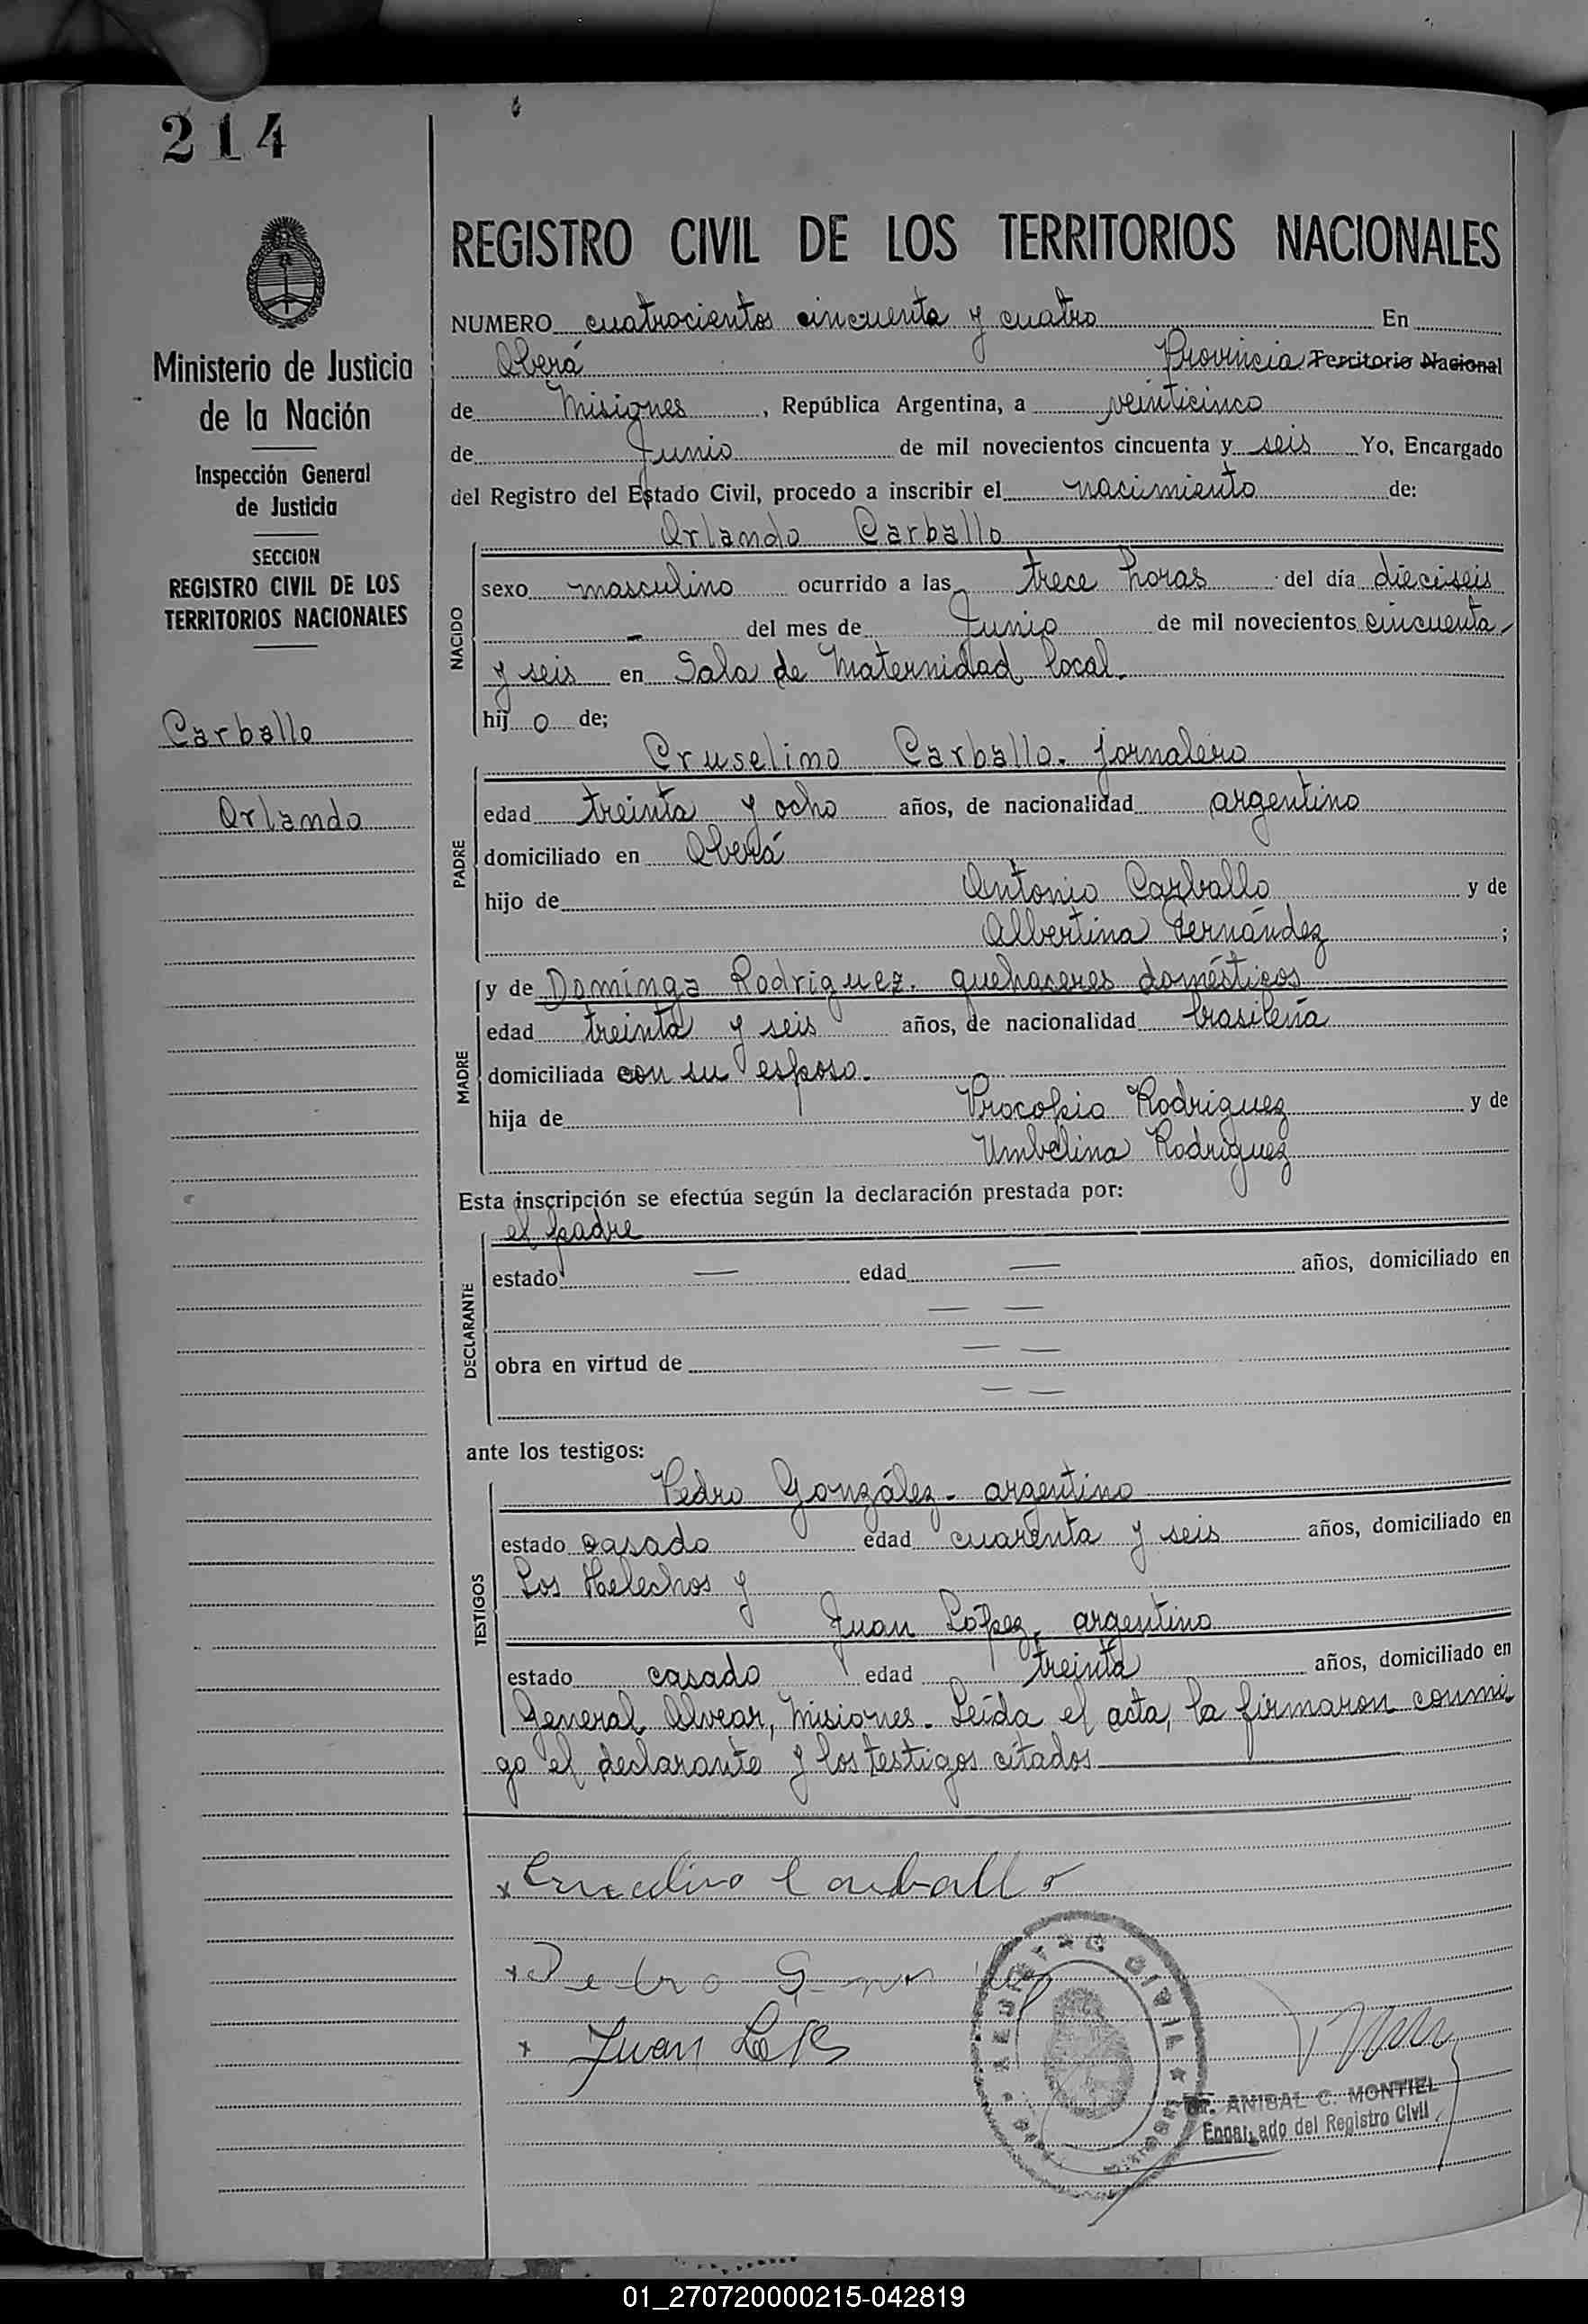 214
REGISTRO CIVIL DE LOS TERRITORIOS NACIONALES
Ministerio de Justicia
de la Nación
Inspección General
de Justicia
SECCION
REGISTRO CIVIL DE LOS
TERRITORIOS NACIONALES
Carballo
Orlando
NUMERO cuatrocientos cincuenta y cuatro En
Oberá Provincia Territorio Nacional
de Misiones, República Argentina, a veinticinco
de Junio de mil novecientos cincuenta y seis Yo, Encargado
del Registro del Estado Civil, procedo a inscribir el nacimiento de:
Orlando Carballo
NACIDO
sexo masculino ocurrido a las trece horas del día dieciseis
- del mes de Junio de mil novecientos cincuenta
y seis en Sala de Maternidad local.
hij o de;
Cruselino Carballo. jornalero
PADRE
edad treinta y ocho años, de nacionalidad argentino
domiciliado en Oberá
hijo de Antonio Carballo y de
Albertina Fernández ;
y de Dominga Rodriguez. quehaceres domésticos
MADRE
edad treinta y seis años, de nacionalidad brasileña
domiciliada con su esposo.
hija de Procopio Rodriguez y de
Umbelina Rodriguez
Esta inscripción se efectúa según la declaración prestada por:
el padre
DECLARANTE
estado — edad — años, domiciliado en
— —
obra en virtud de — —
— —
ante los testigos:
Pedro González - argentino
TESTIGOS
estado casado edad cuarenta y seis años, domiciliado en
Los Helechos y
Juan López, argentino
estado casado edad treinta años, domiciliado en
General Alvear, Misiones. Leída el acta, la firmaron conmi-
go el declarante y los testigos citados
x Cruselino Carballo
x Pedro
x Juan
REGISTRO CIVIL
Dr. ANIBAL C. MONTIEL
Encargado del Registro Civil
01_270720000215-042819